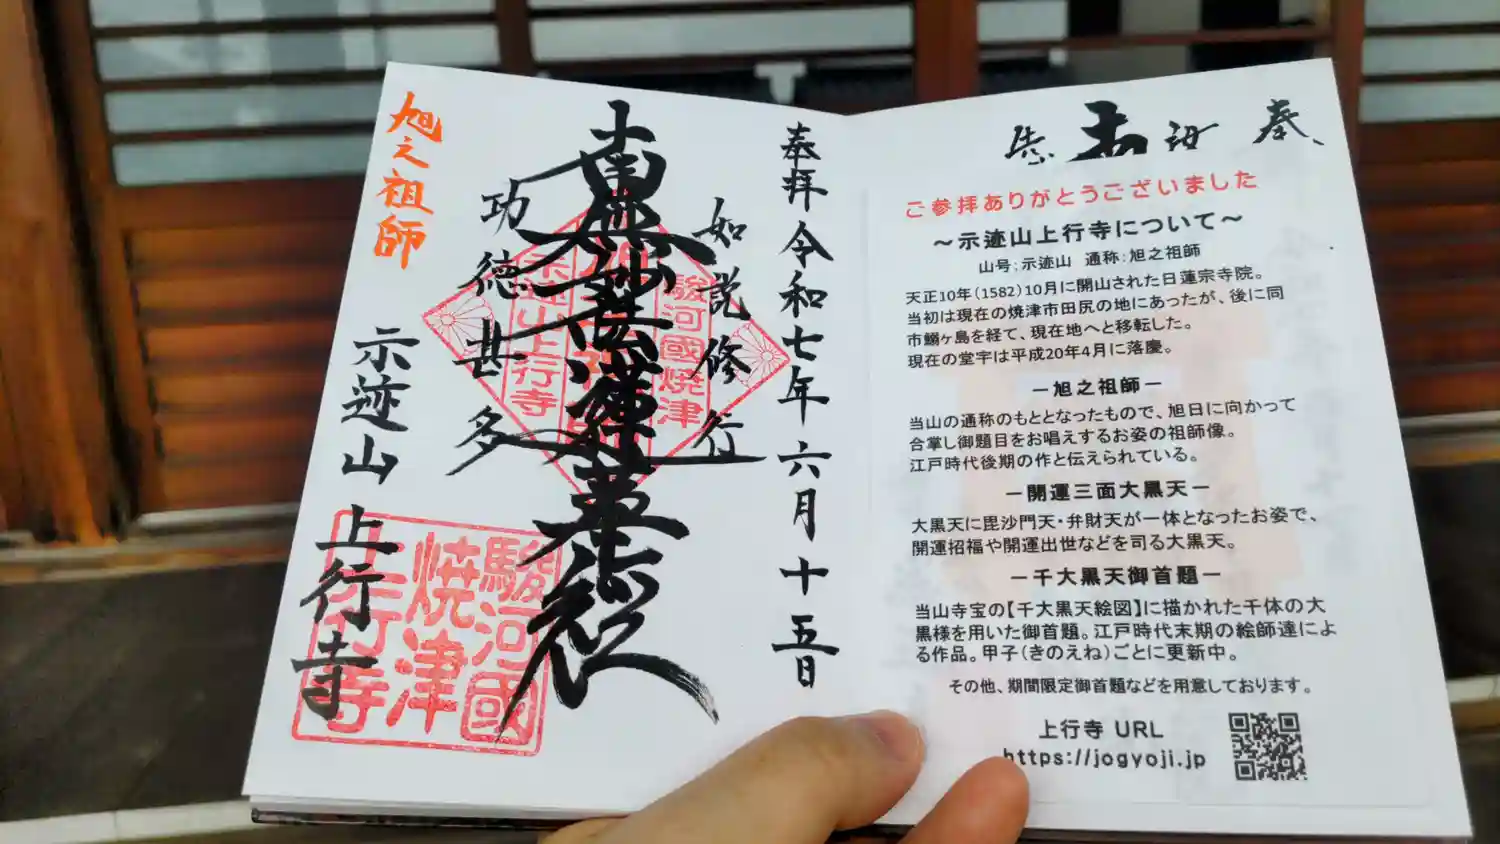 奉拝 令和七年 六月十五日
如説修行
南無妙法蓮華経
功徳甚多
旭之祖師
示迹山 上行寺
駿河國
焼津
上行寺
駿河國焼津
示迹山上行寺
ご参拝ありがとうございました
～示迹山上行寺について～
山号:示迹山 通称:旭之祖師
天正10年(1582)10月に開山された日蓮宗寺院。
当初は現在の焼津市田尻の地にあったが、後に同
市鰯ヶ島を経て、現在地へと移転した。
現在の堂宇は平成20年4月に落慶。
－旭之祖師－
当山の通称のもととなったもので、旭日に向かって
合掌し御題目をお唱えするお姿の祖師像。
江戸時代後期の作と伝えられている。
－開運三面大黒天－
大黒天に毘沙門天・弁財天が一体となったお姿で、
開運招福や開運出世などを司る大黒天。
－千大黒天御首題－
当山寺宝の【千大黒天絵図】に描かれた千体の大
黒様を用いた御首題。江戸時代末期の絵師達によ
る作品。甲子(きのえね)ごとに更新中。
その他、期間限定御首題などを用意しております。
上行寺 URL
https://jogyoji.jp